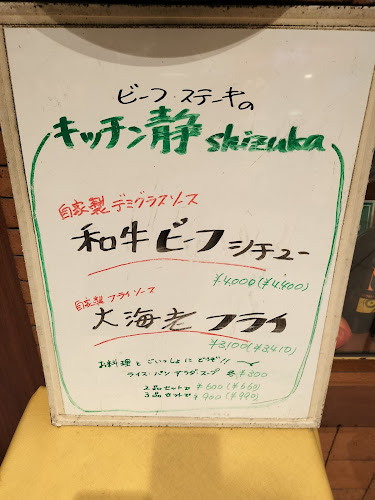 ビーフ・ステーキの
キッチン静 shizuka
自家製 デミグラスソース
和牛ビーフシチュー
¥4,000(¥4,400)
自家製 フライソース
大海老フライ
¥3,100(¥3,410)
お料理とごいっしょにどうぞ!!
ライス・パン サラダ・スープ 各¥300
2品セットで ¥600(¥660)
3品セットで ¥900(¥990)